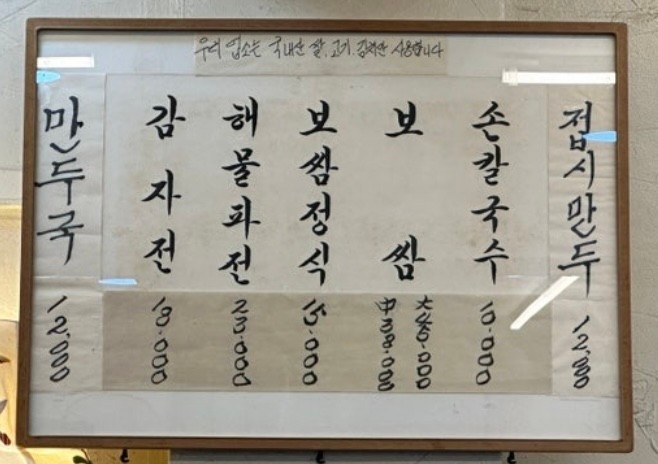 우리 업소는 국내산 쌀, 고기. 김치만 사용합니다
만두국 12,000
감자전 18.000
해물파전 23.000
보쌈정식 15.000
보쌈
中 38.000
大 45.000
손칼국수 10.000
접시만두 12,000